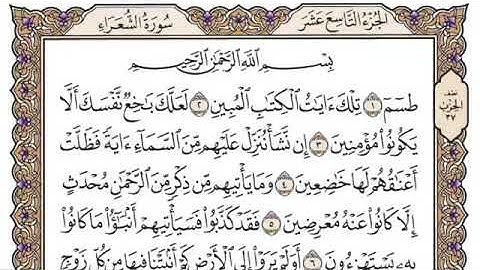 الجزء التاسع عشر
سورة الشعراء
نصف
الحزب
٣٧
بِسْمِ اللَّهِ الرَّحْمَٰنِ الرَّحِيمِ
طسٓمٓ ١ تِلْكَ ءَايَٰتُ الْكِتَٰبِ الْمُبِينِ ٢ لَعَلَّكَ بَٰخِعٌ نَّفْسَكَ أَلَّا
يَكُونُوا۟ مُؤْمِنِينَ ٣ إِن نَّشَأْ نُنَزِّلْ عَلَيْهِم مِّنَ السَّمَآءِ ءَايَةً فَظَلَّتْ
أَعْنَٰقُهُمْ لَهَا خَٰضِعِينَ ٤ وَمَا يَأْتِيهِم مِّن ذِكْرٍ مِّنَ الرَّحْمَٰنِ مُحْدَثٍ
إِلَّا كَانُوا۟ عَنْهُ مُعْرِضِينَ ٥ فَقَدْ كَذَّبُوا۟ فَسَيَأْتِيهِمْ أَنۢبَٰٓؤُا۟ مَا كَانُوا۟
بِهِۦ يَسْتَهْزِءُونَ ٦ أَوَلَمْ يَرَوْا۟ إِلَى الْأَرْضِ كَمْ أَنۢبَتْنَا فِيهَا مِن كُلِّ زَوْجٍ